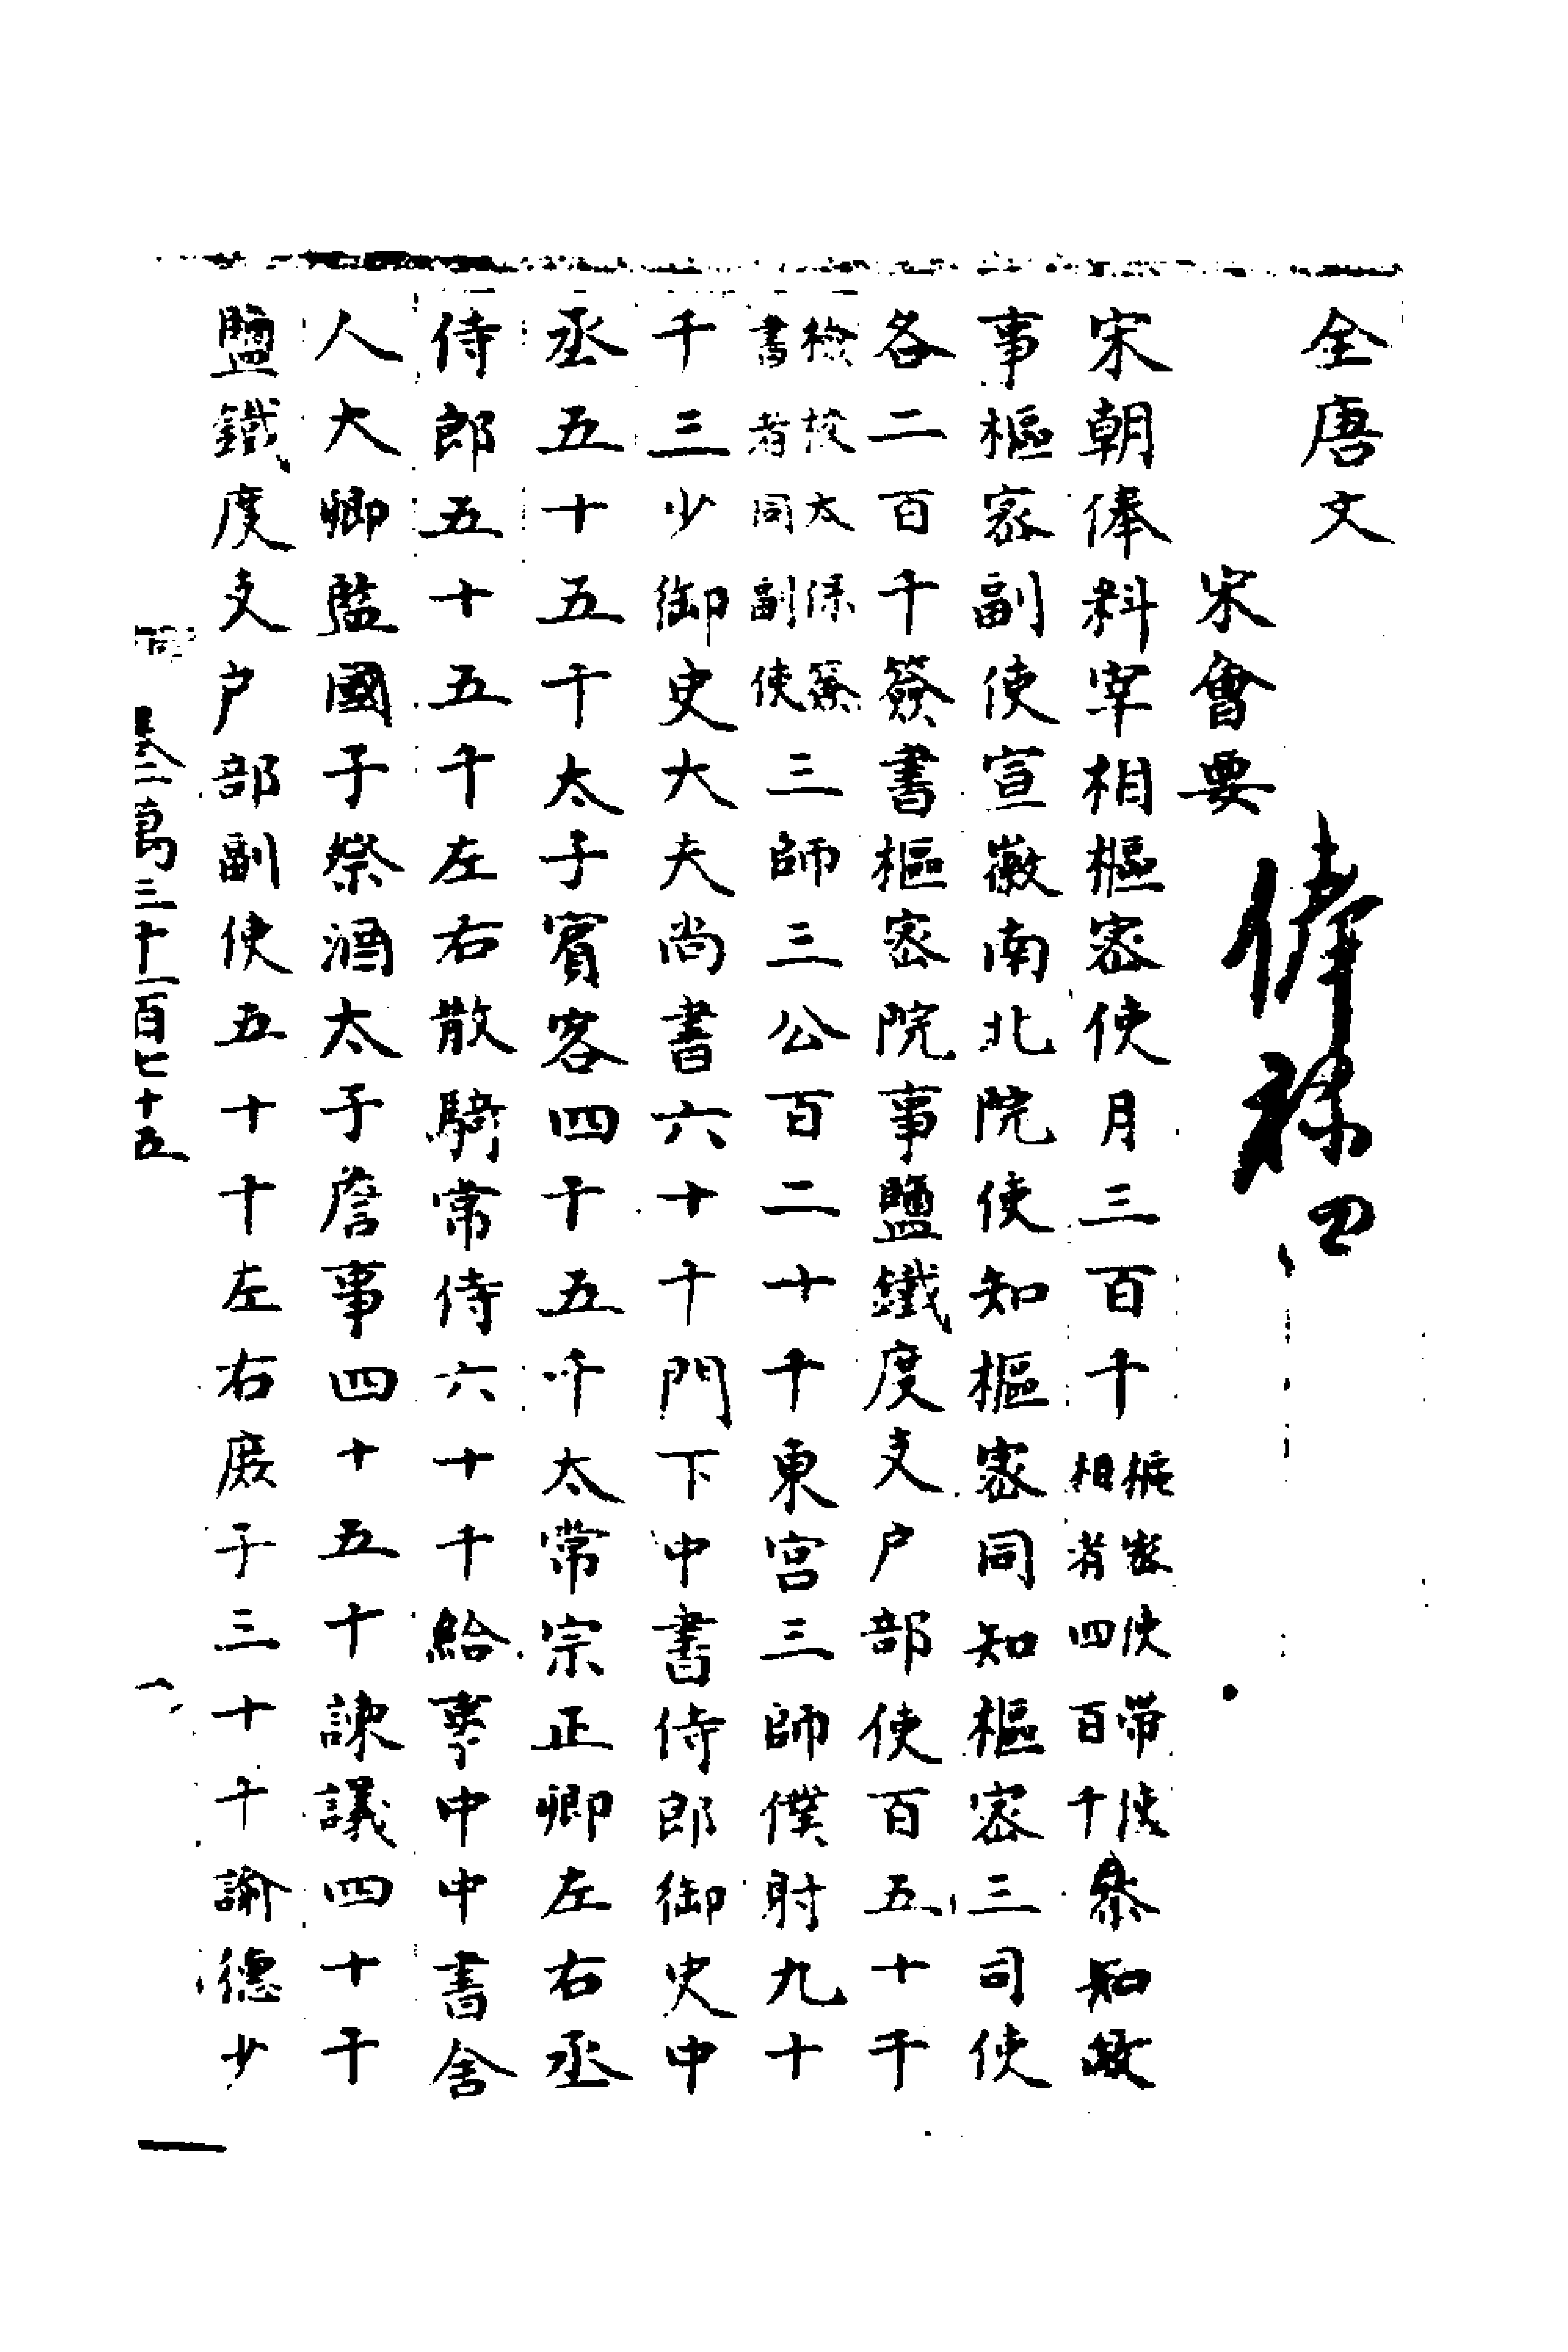 全唐文
宋會要
俸祿四
宋朝俸料宰相樞密使月三百千樞密使帶使相者四百千叅知政
事樞密副使宣徽南北院使知樞密同知樞密三司使
各二百千簽書樞密院事鹽鐵度支户部使百五十千
檢校太保簽書者同副使三師三公百二十千東宫三師僕射九十
千三少御史大夫尚書六十千門下中書侍郎御史中
丞五十五千太子賓客四十五千太常宗正卿左右丞
侍郎五十五千左右散騎常侍六十千給事中中書舍
人大卿監國子祭酒太子詹事四十五千諫議四十千
鹽鐵度支户部副使五十千左右庶子三十千諭德少
卷二萬三十一百七十五
一